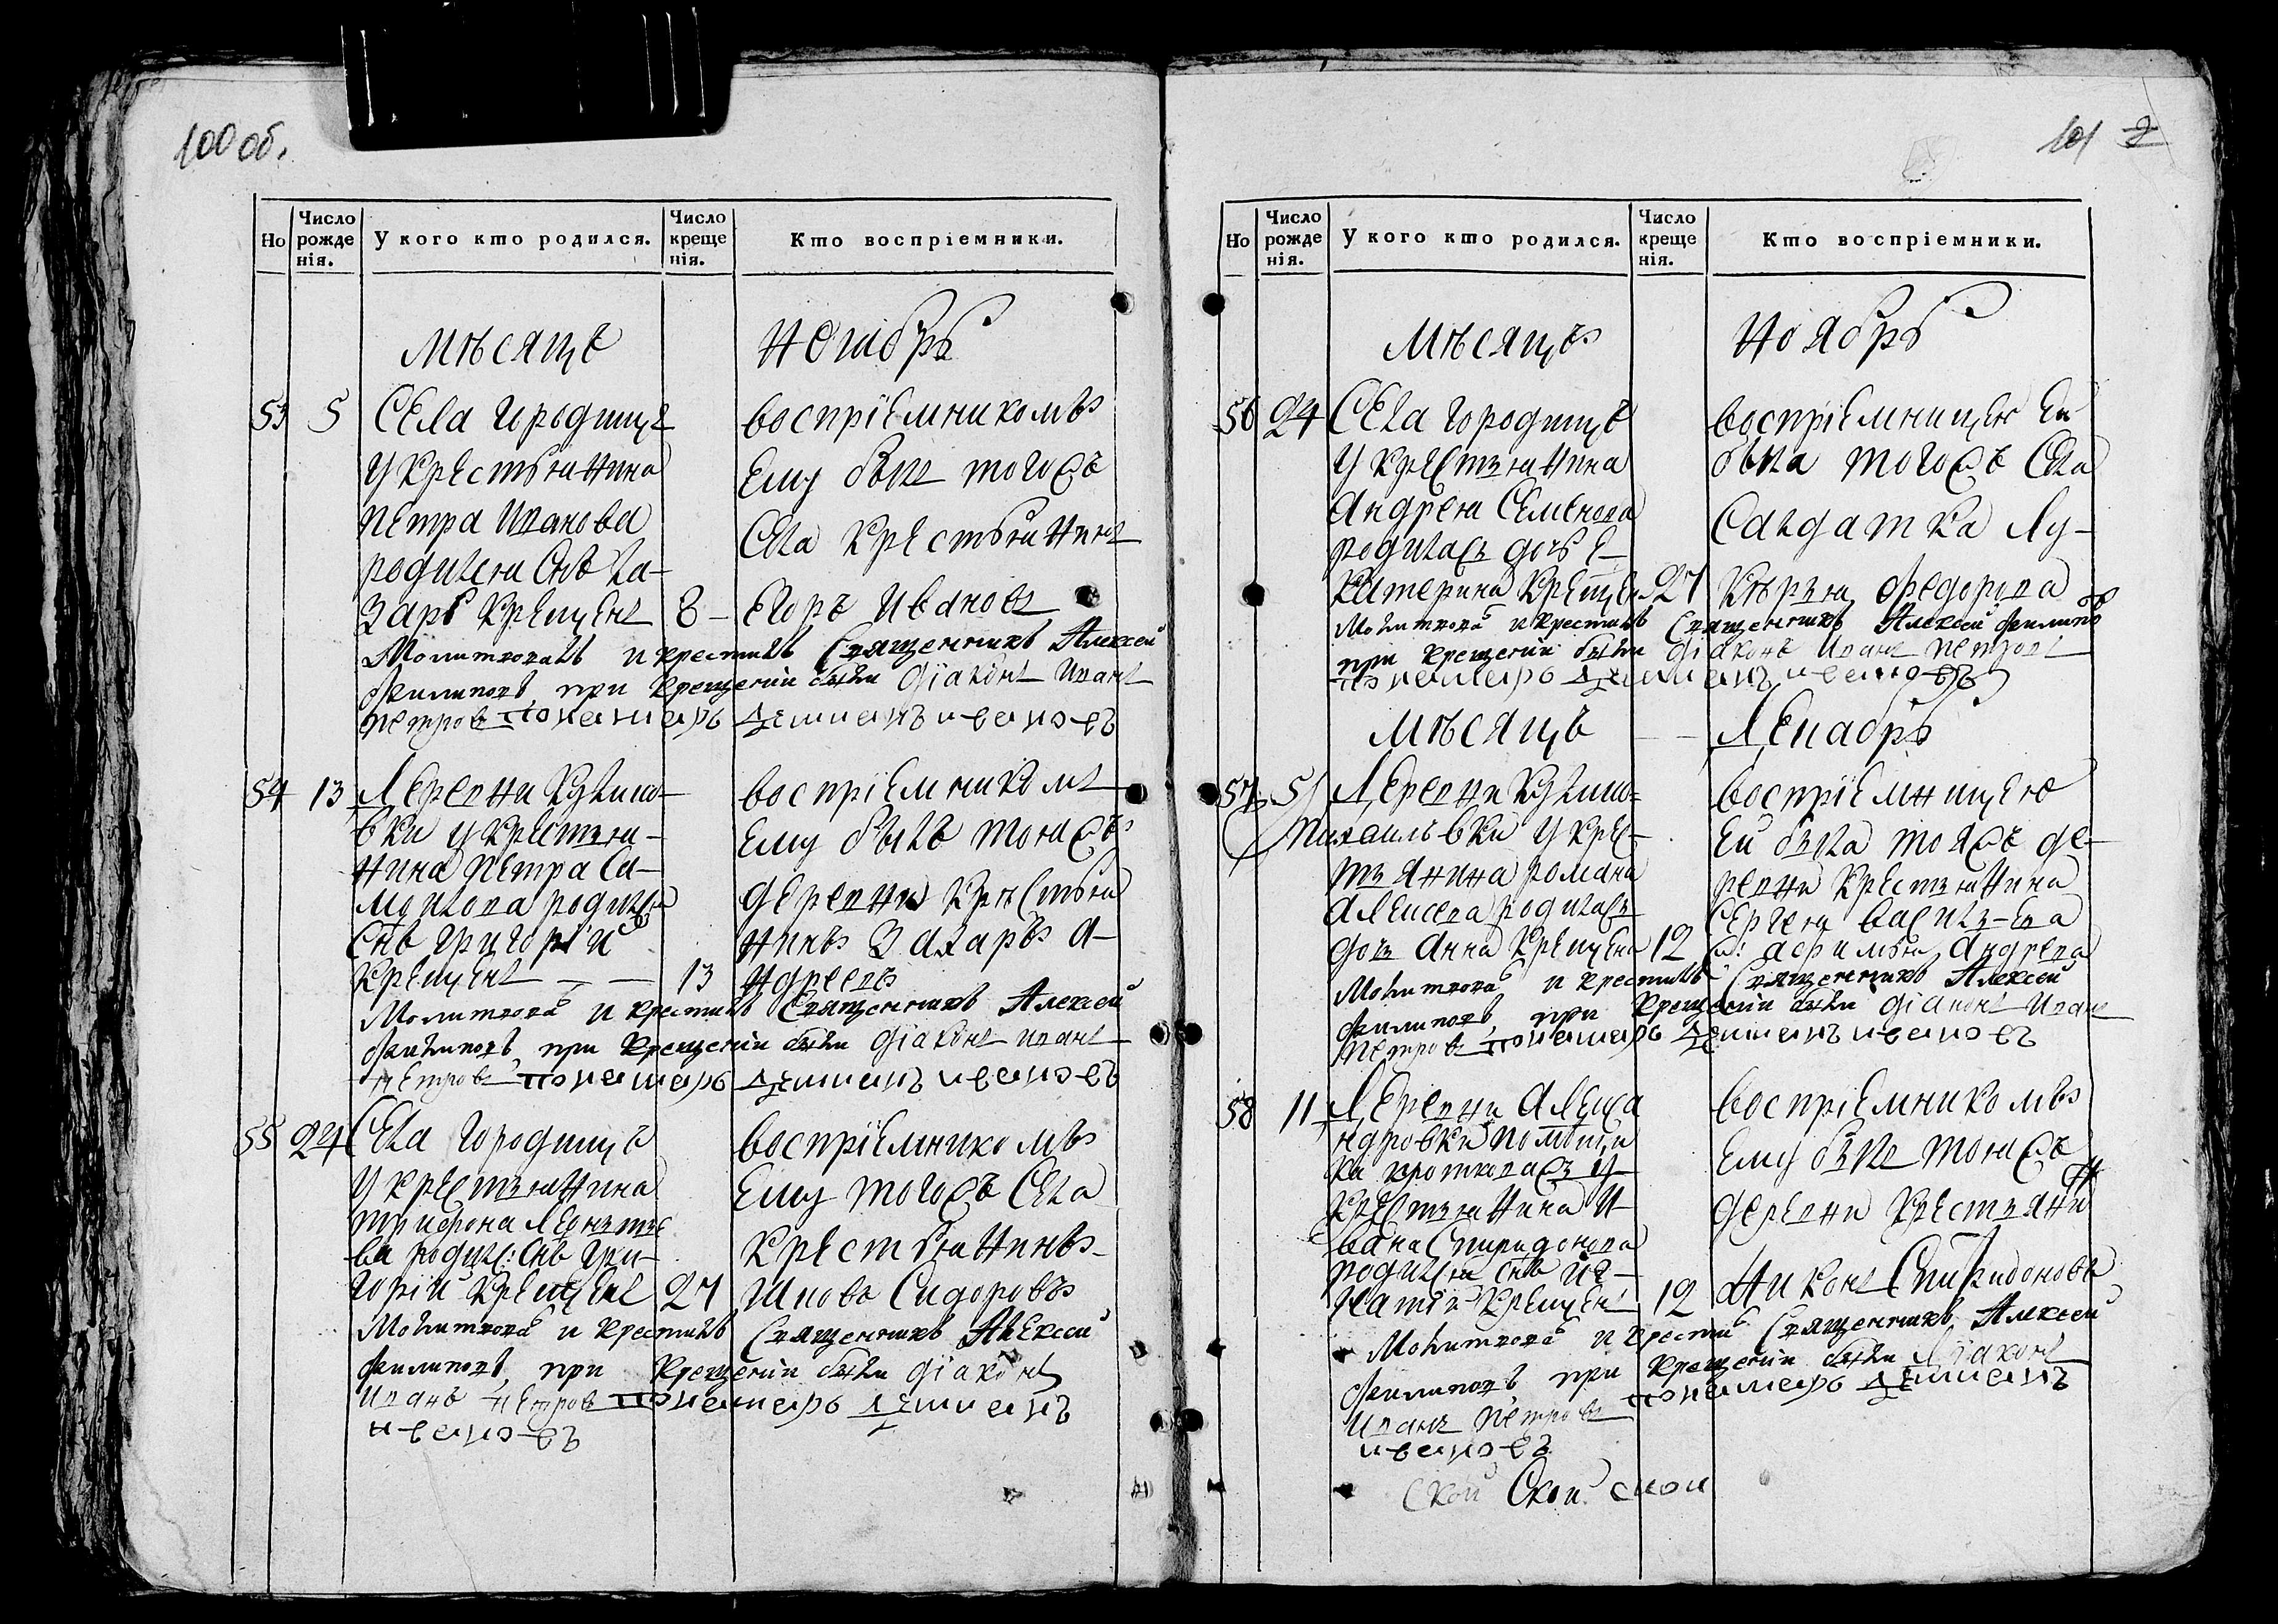 100 об.
Но
Число рожде нія.
У кого кто родился.
Число креще нія.
Кто воспріемники.
мѣсяцъ
ноябрь
53 5 Села Городищъ
у крестьянина
Петра Иванова
родился Снъ Ла-
зарь крещенъ 8 -
воспріемникомъ
ему былъ тогожъ
Села крестьянинъ
Егоръ Ивановъ
Молитвовалъ и крестилъ Священникъ Алексей
Филиповъ, при крещеніи были Діаконъ Иванъ
Петровъ понамарь Демианъ ивановъ
54 13 Деревни Кулико-
вки у крестья-
нина Петра Са-
мойлова родился
Снъ Григорій
крещенъ - - 13
воспріемникомъ
ему былъ тояжъ
деревни крестья
нинъ Захаръ А-
ндреевъ
Молитвовалъ и крестилъ Священникъ Алексей
Филиповъ, при крещеніи были діаконъ иванъ
петровъ понамарь Демианъ ивановъ
55 24 Села Городищъ
у крестьянина
трифона Леонтье
ва родилс: Снъ Гри-
горій крещенъ 27
воспріемникомъ
ему тогожъ Села
крестьянинъ
Яковъ Сидоровъ
Молитвовалъ и крестилъ Священникъ Алексей
Филиповъ, при крещеніи были діаконъ
иванъ петровъ понамарь Демианъ
ивановъ
101 2
Но
Число рожде нія.
У кого кто родился.
Число креще нія.
Кто воспріемники.
мѣсяцъ
ноябрь
56 24 Села Городищъ
у крестьянина
Андрея Семенова
родилась дочь Е-
катерина крещен 27
воспріемницею ей
была тогожъ Села
Салдатка Лу-
кѣрья Федорова
Молитвовалъ и крестилъ Священникъ Алексей Филиповъ
при крещеніи были діаконъ Иванъ Петровъ
понамарь Демианъ ивановъ
мѣсяцъ - - Декабрь
57 5 Деревни Кулико-
Михаильвки у кре-
тьянина романа
Алексева родилась
дочь Анна крещена 12
воспріемницею
ей была тояжъ де-
ревни крестьянина
Сергея васильева
ж: афимья Андрева
Молитвовалъ и крестилъ Священникъ Алексей
Филиповъ, при крещеніи были діаконъ Иванъ
петровъ понамарь Демианъ ивановъ
58 11 Деревни Алекса
ндровки помѣщи
ка
крестьянина И-
вана Спиридонова
родился снъ Иг-
натій крещен 12
воспріемникомъ
ему былъ тояжъ
деревни крестьянинъ
Никонъ Спиридоновъ
Молитвовалъ и крестилъ Священникъ Алексей
Филиповъ при крещеніи были Діаконъ
иванъ петровъ понамарь Демианъ
ивановъ
Ской Ской ской